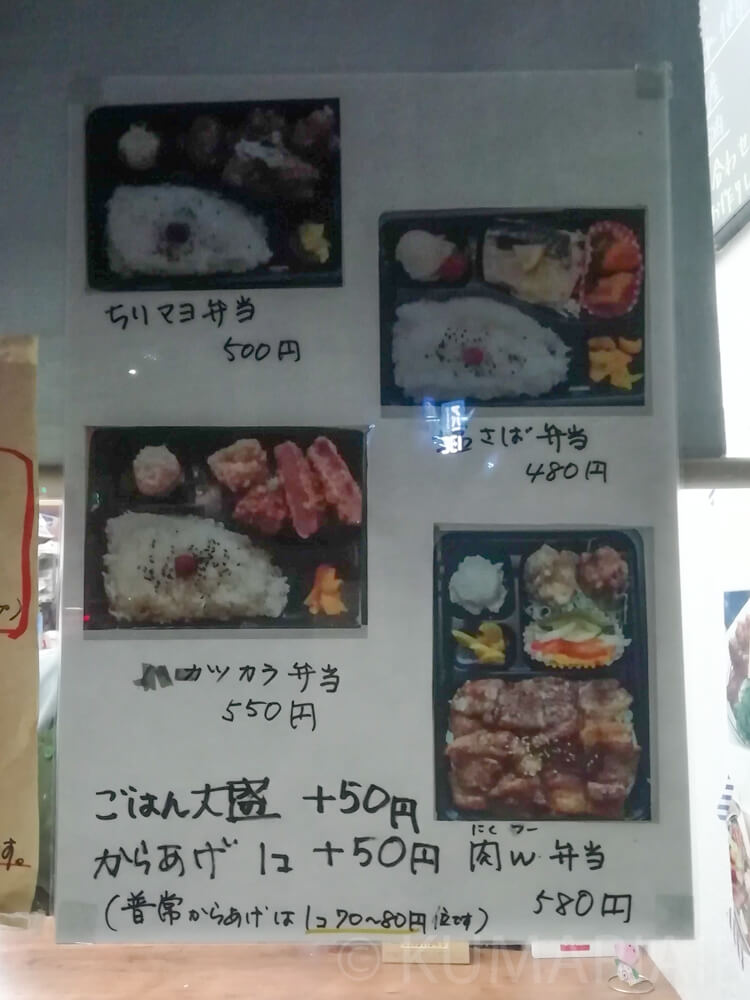 ちリマヨ弁当
500円
さば弁当
480円
ハムカツカラ弁当
550円
ごはん大盛 +50円
からあげ 1コ +50円
(普常からあげは1コ70~80円位です)
にくウー
肉W弁当
580円
す。
© KUMAP